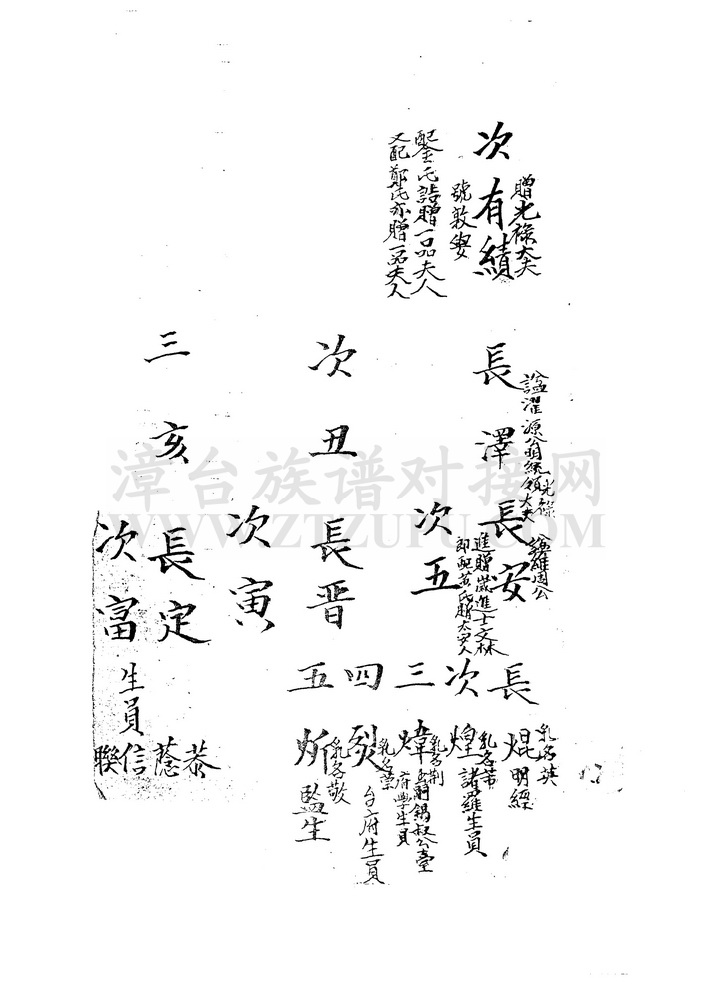 次有績
贈光祿大夫
號敦安
配李氏誥贈一品夫人
又配鄭氏亦贈一品夫人
長澤
次丑
三亥
謚濯源公
光祿
大夫
長安
謚維周公
次五
進贈歲進士文林
郎配黃氏贈太安人
長晋
次寅
長定
次富
生員
長
次
三
四
五
焜
乳名英
明經
煌
乳名芾
諸羅生員
煒
乳名荆
府學生員
烈
乳名榮
台府生員
炘
乳名敬
監生
恭
蔭
信
聯
漳台族谱对接网
WWW.ZTZUPU.COM